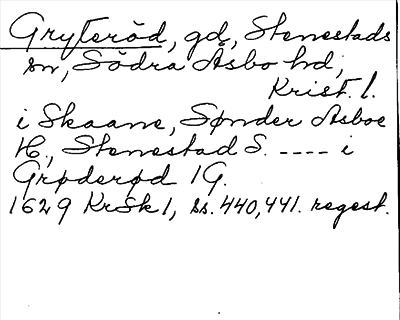 Gryteröd, gd, Stenestads
sn, Södra Åsbo hd,
Krist. l.
i Skaane, Sønder Asboe
H., Stenestad S. ---- i
Grøderød 1G.
1629 KrSk 1, ss. 440,441. regest.